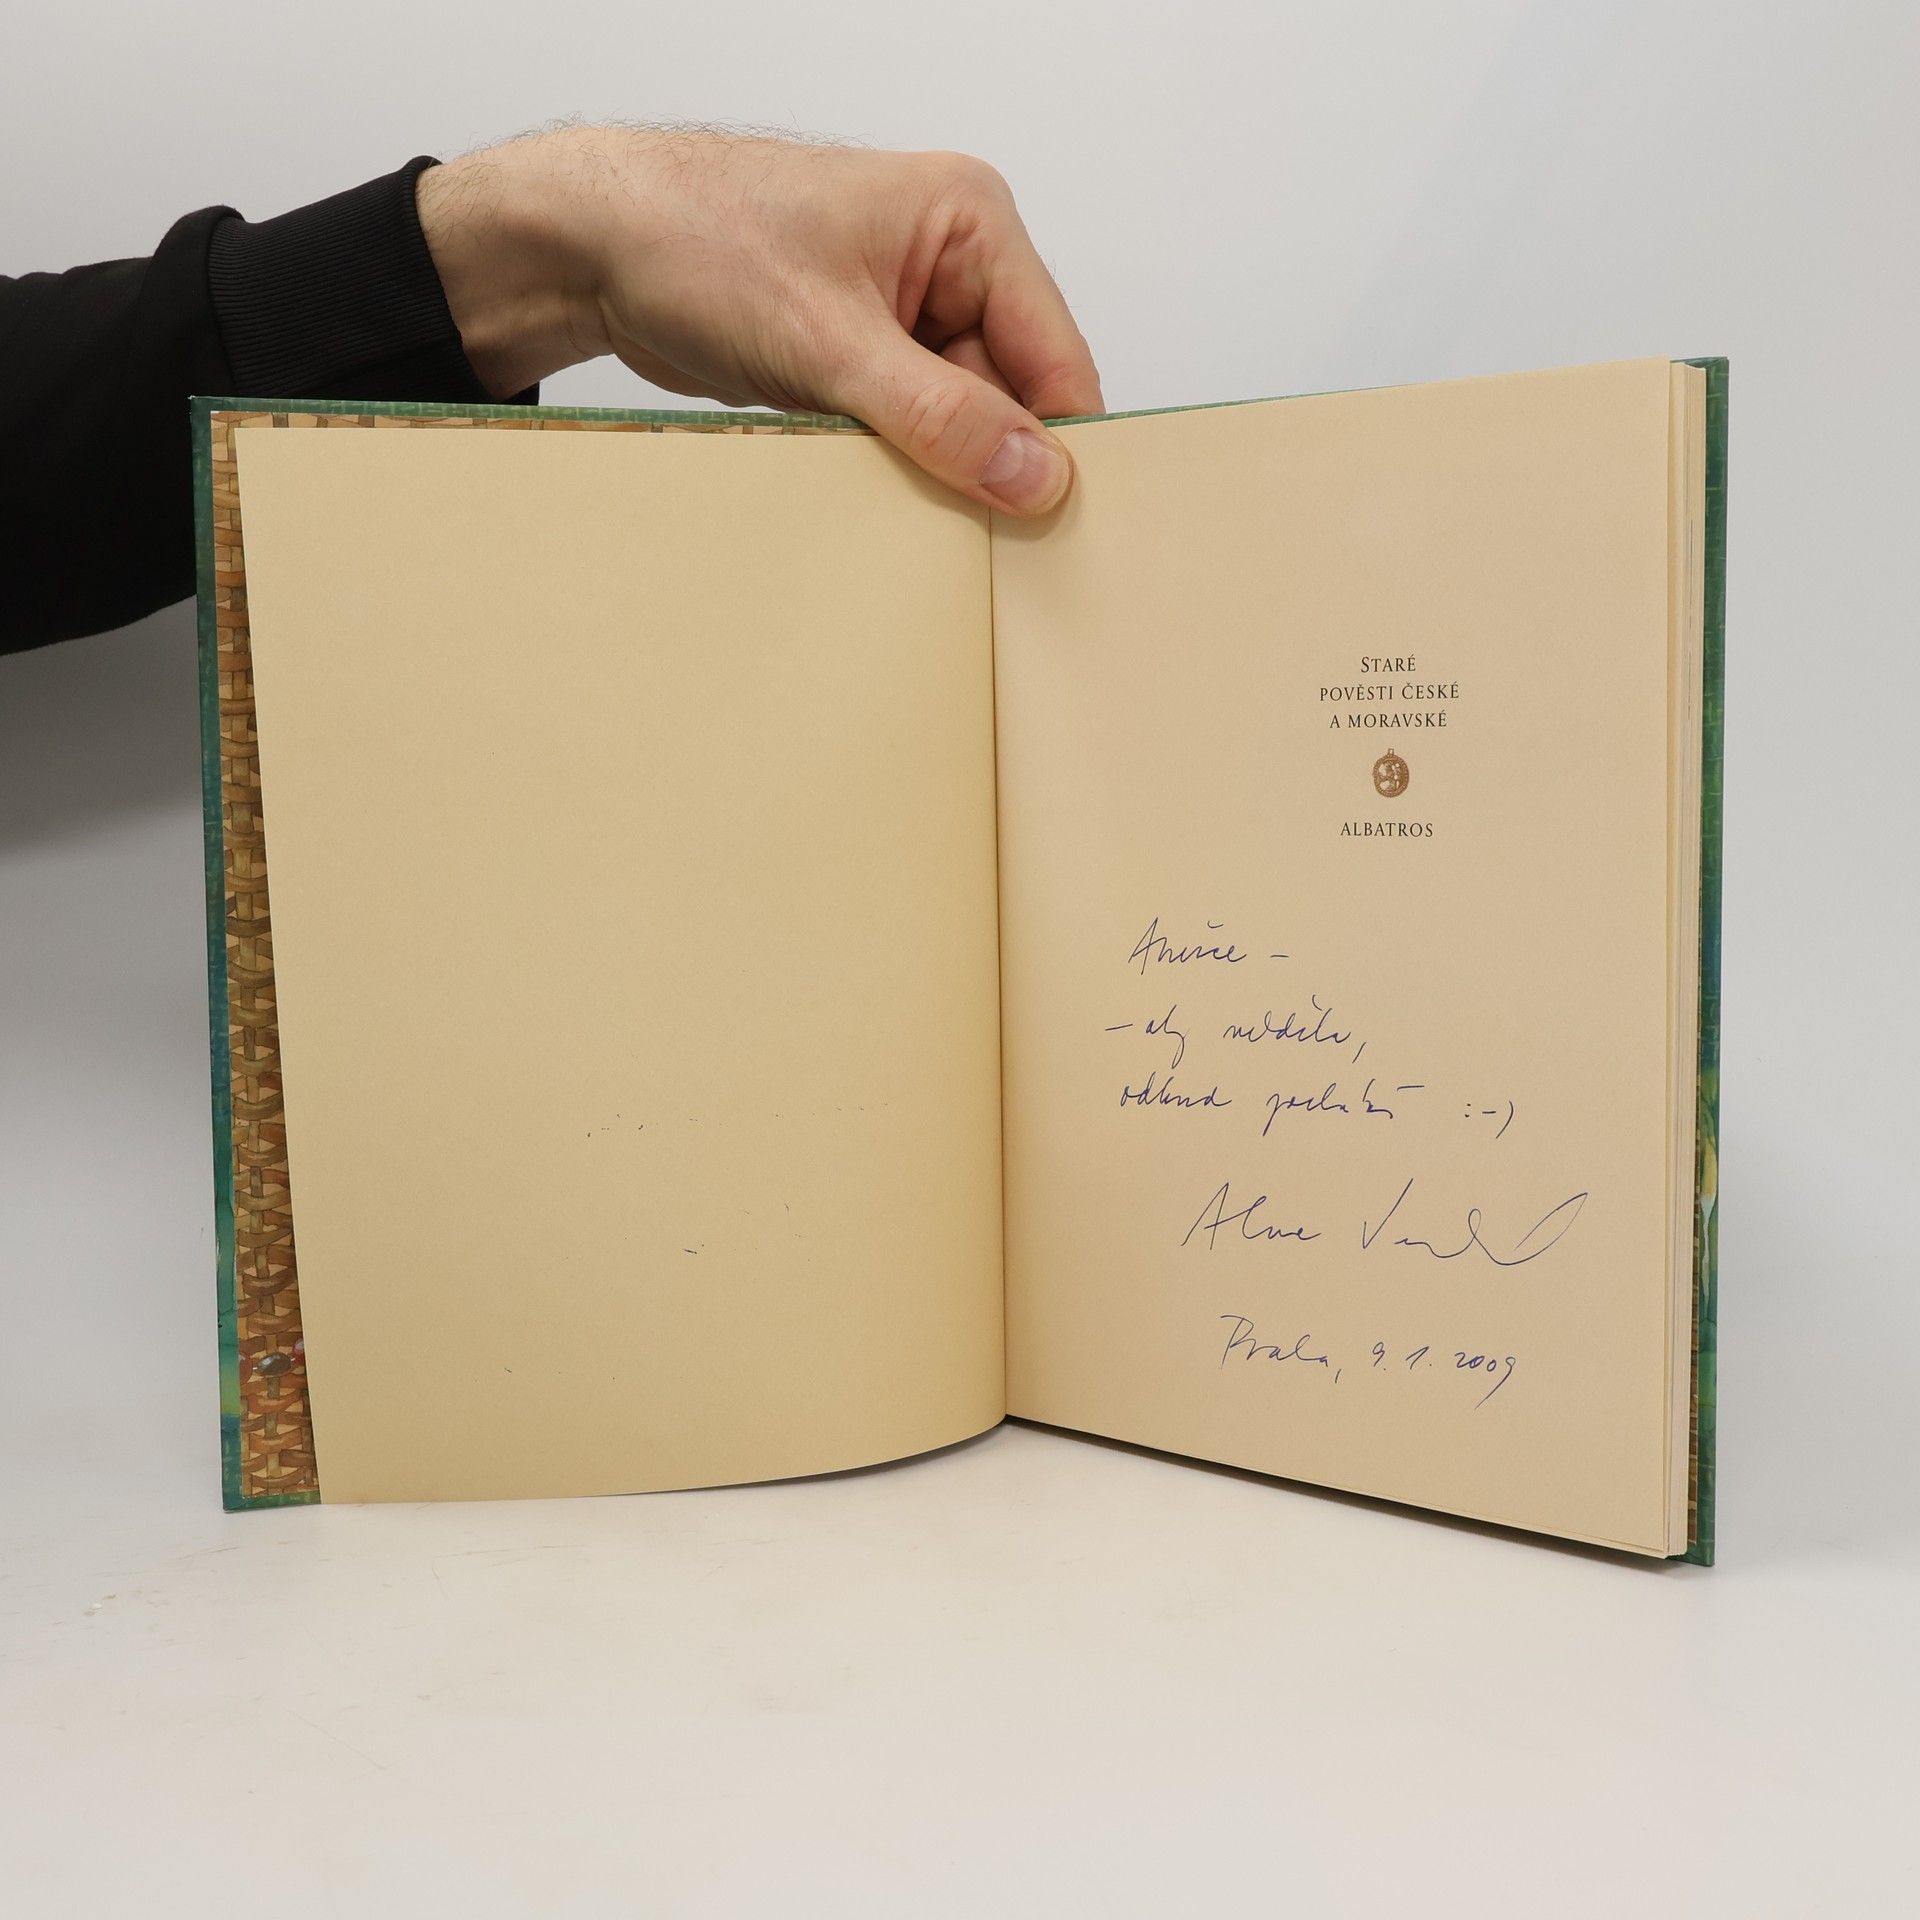 STARÉ
POVĚSTI ČESKÉ
A MORAVSKÉ
ALBATROS
Anežce –
– aby věděla,
odkud pochází :-)
Alena
Praha, 9. 1. 2009